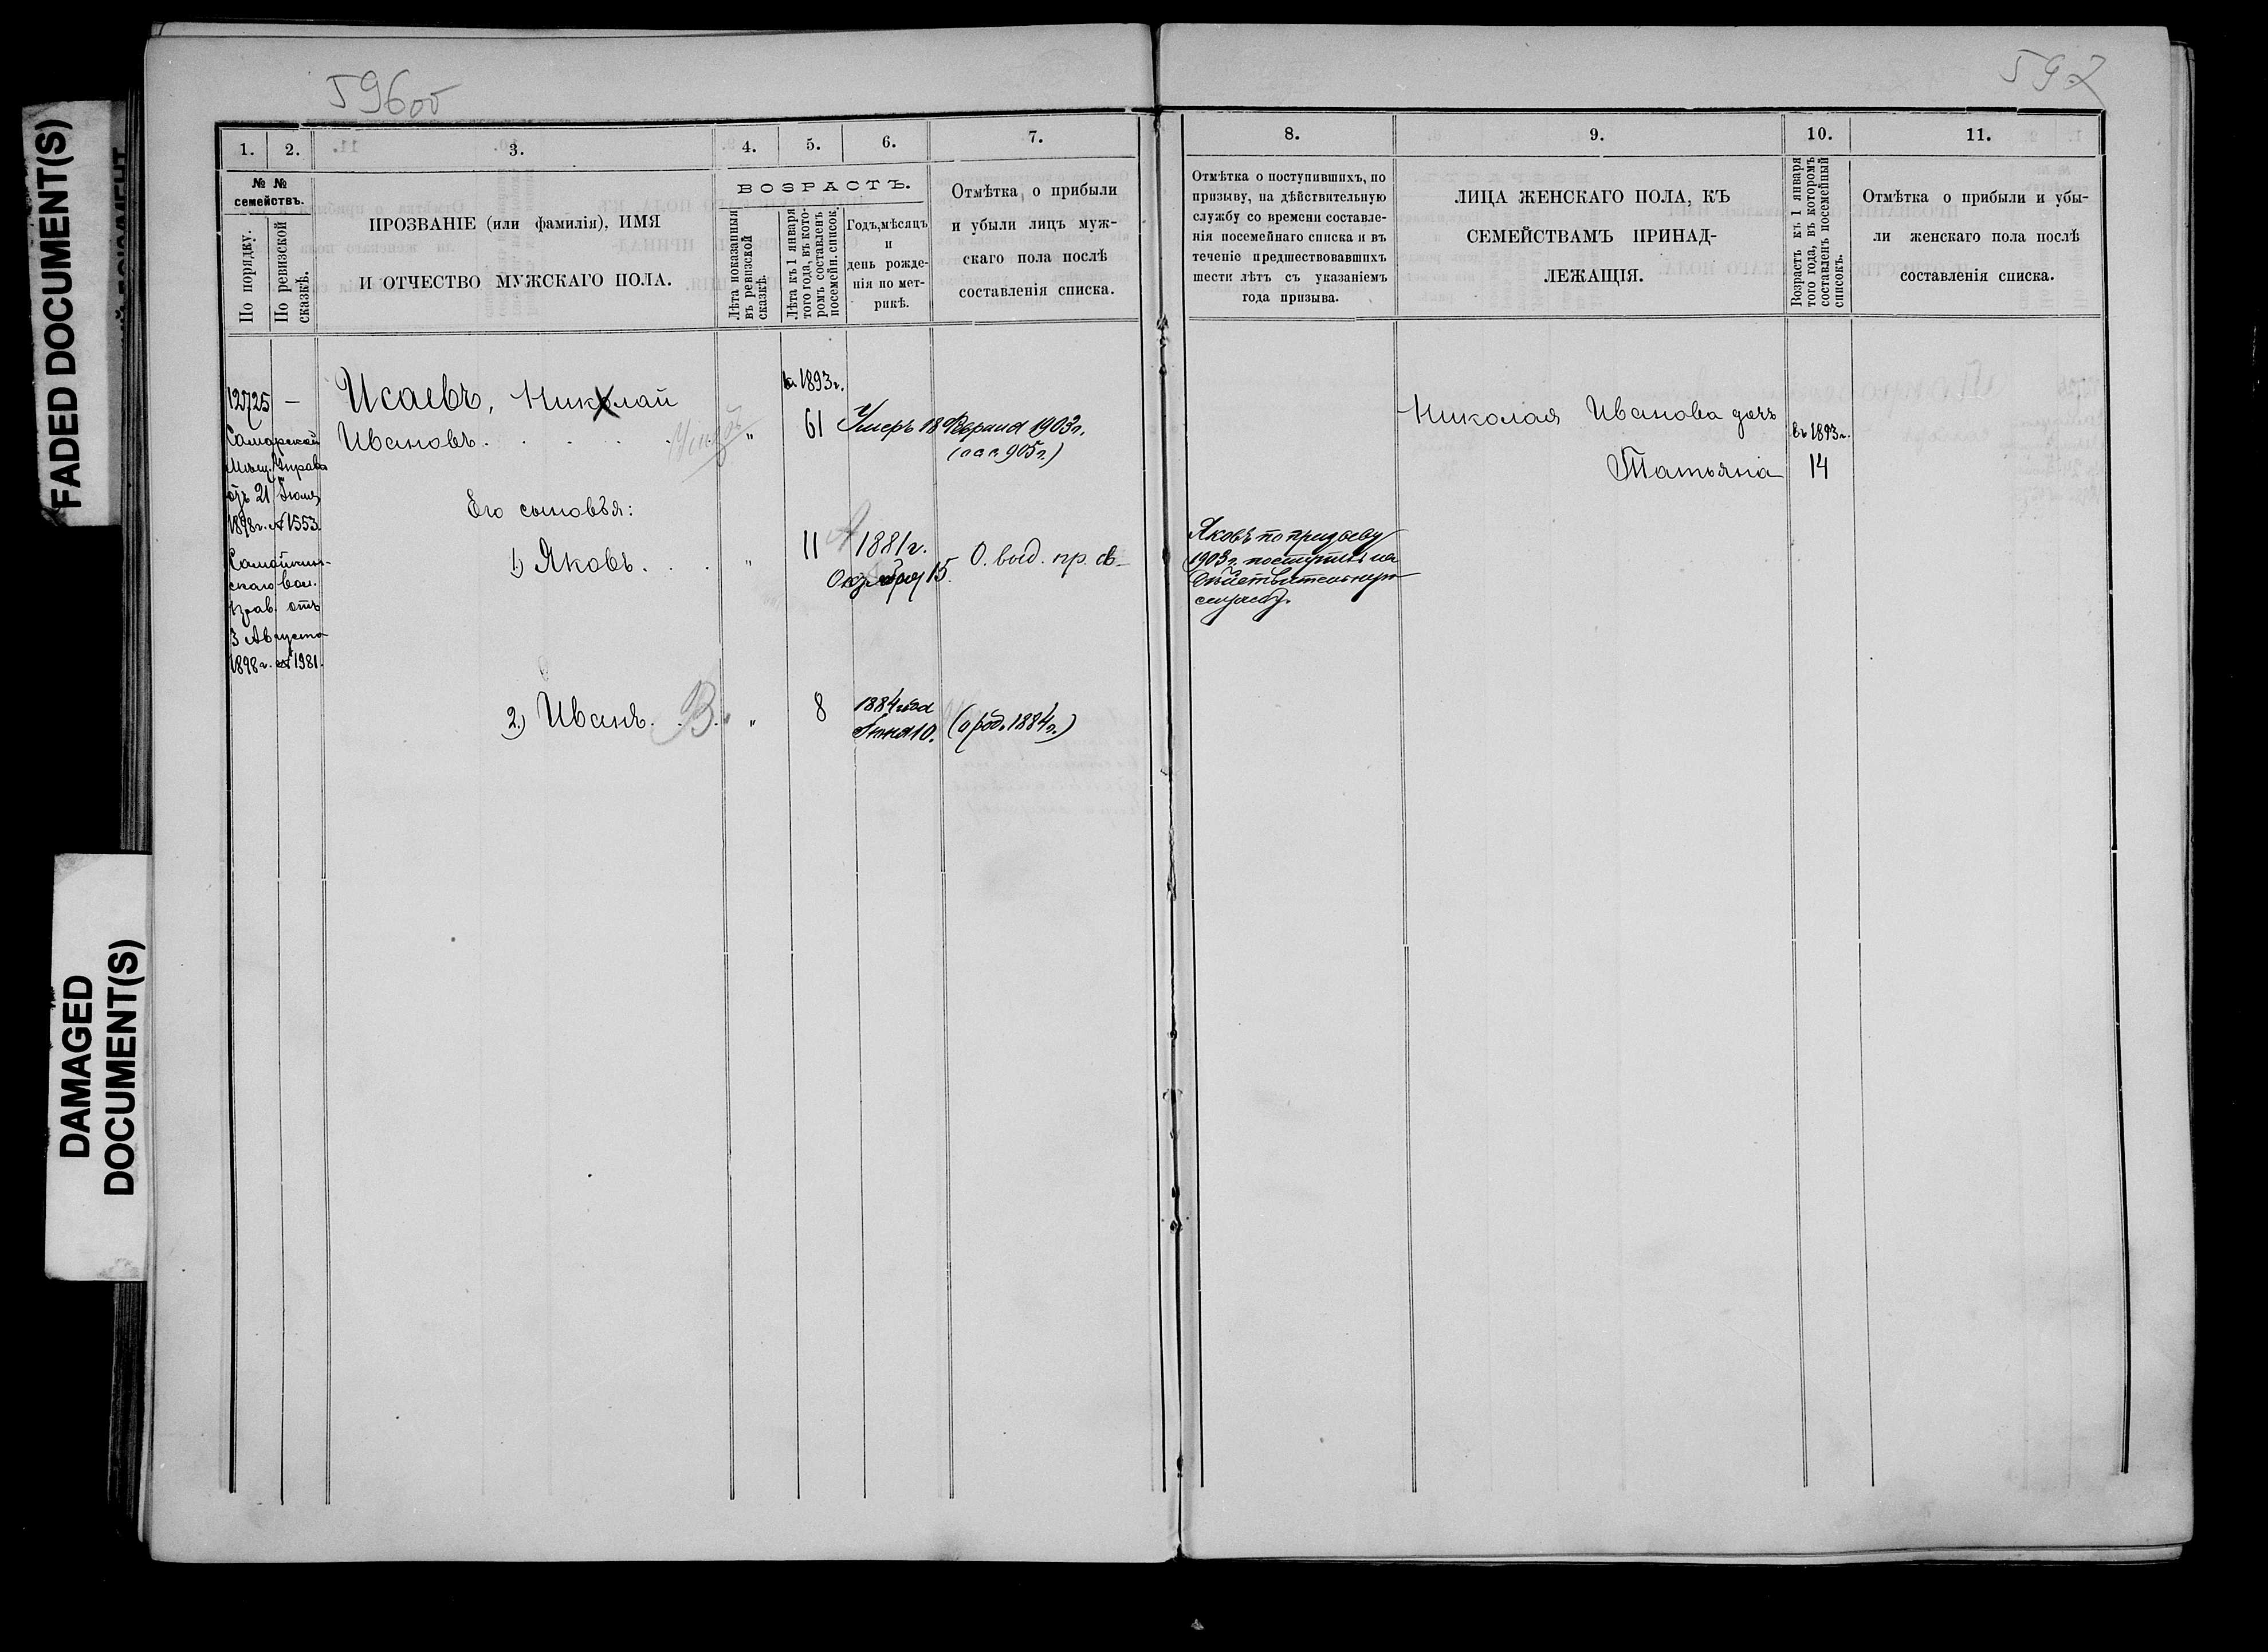 FADED DOCUMENT(S)
DAMAGED
DOCUMENT(S)
596об
1.
2.
3.
4.
5.
6.
7.
№ №
семействъ.
По порядку.
По ревизской
сказкѣ.
ПРОЗВАНІЕ (или фамилія), ИМЯ
И ОТЧЕСТВО МУЖСКАГО ПОЛА.
ВОЗРАСТЪ.
Лѣта показанныя
въ ревизской
сказкѣ.
Лѣта къ 1 января
того года, въ кото-
ромъ составленъ
посемейн. список.
Годъ, мѣсяцъ
и
день рожде-
нія по мет-
рикѣ.
Отмѣтка о прибыли
и убыли лицъ муж-
скаго пола послѣ
составленія списка.
12725
—
Самарской
Мѣщ. Управы
отъ 21 Іюля
1898г. № 1553.
скаго вол.
прав. отъ
3 Августа
1898г. № 1981.
Исаевъ, Николай
Ивановъ. . . . .
"
къ 1893г.
61
Умеръ 18 Февраля 1903г.
905г.)
Его сыновья:
1) Яковъ. . .
"
11
1881г.
Октября 15.
О. выд. пр. св
2) Иванъ. . В.
"
8
1884 года
Іюня 10.
(о род. 1884г.)
597
8.
9.
10.
11.
Отмѣтка о поступившихъ, по
призыву, на дѣйствительную
службу со времени составле-
нія посемейнаго списка и въ
теченіе предшествовавшихъ
шести лѣтъ съ указаніемъ
года призыва.
ЛИЦА ЖЕНСКАГО ПОЛА, КЪ
СЕМЕЙСТВАМЪ ПРИНАД-
ЛЕЖАЩІЯ.
Возрастъ къ 1 января
того года, въ которомъ
составленъ посемейный
списокъ.
Отмѣтка о прибыли и убы-
ли женскаго пола послѣ
составленія списка.
Николая Иванова дочь
въ 1893г.
Татьяна
14
Яковъ по призыву
1903г. поступилъ на
дѣйствительную
службу.